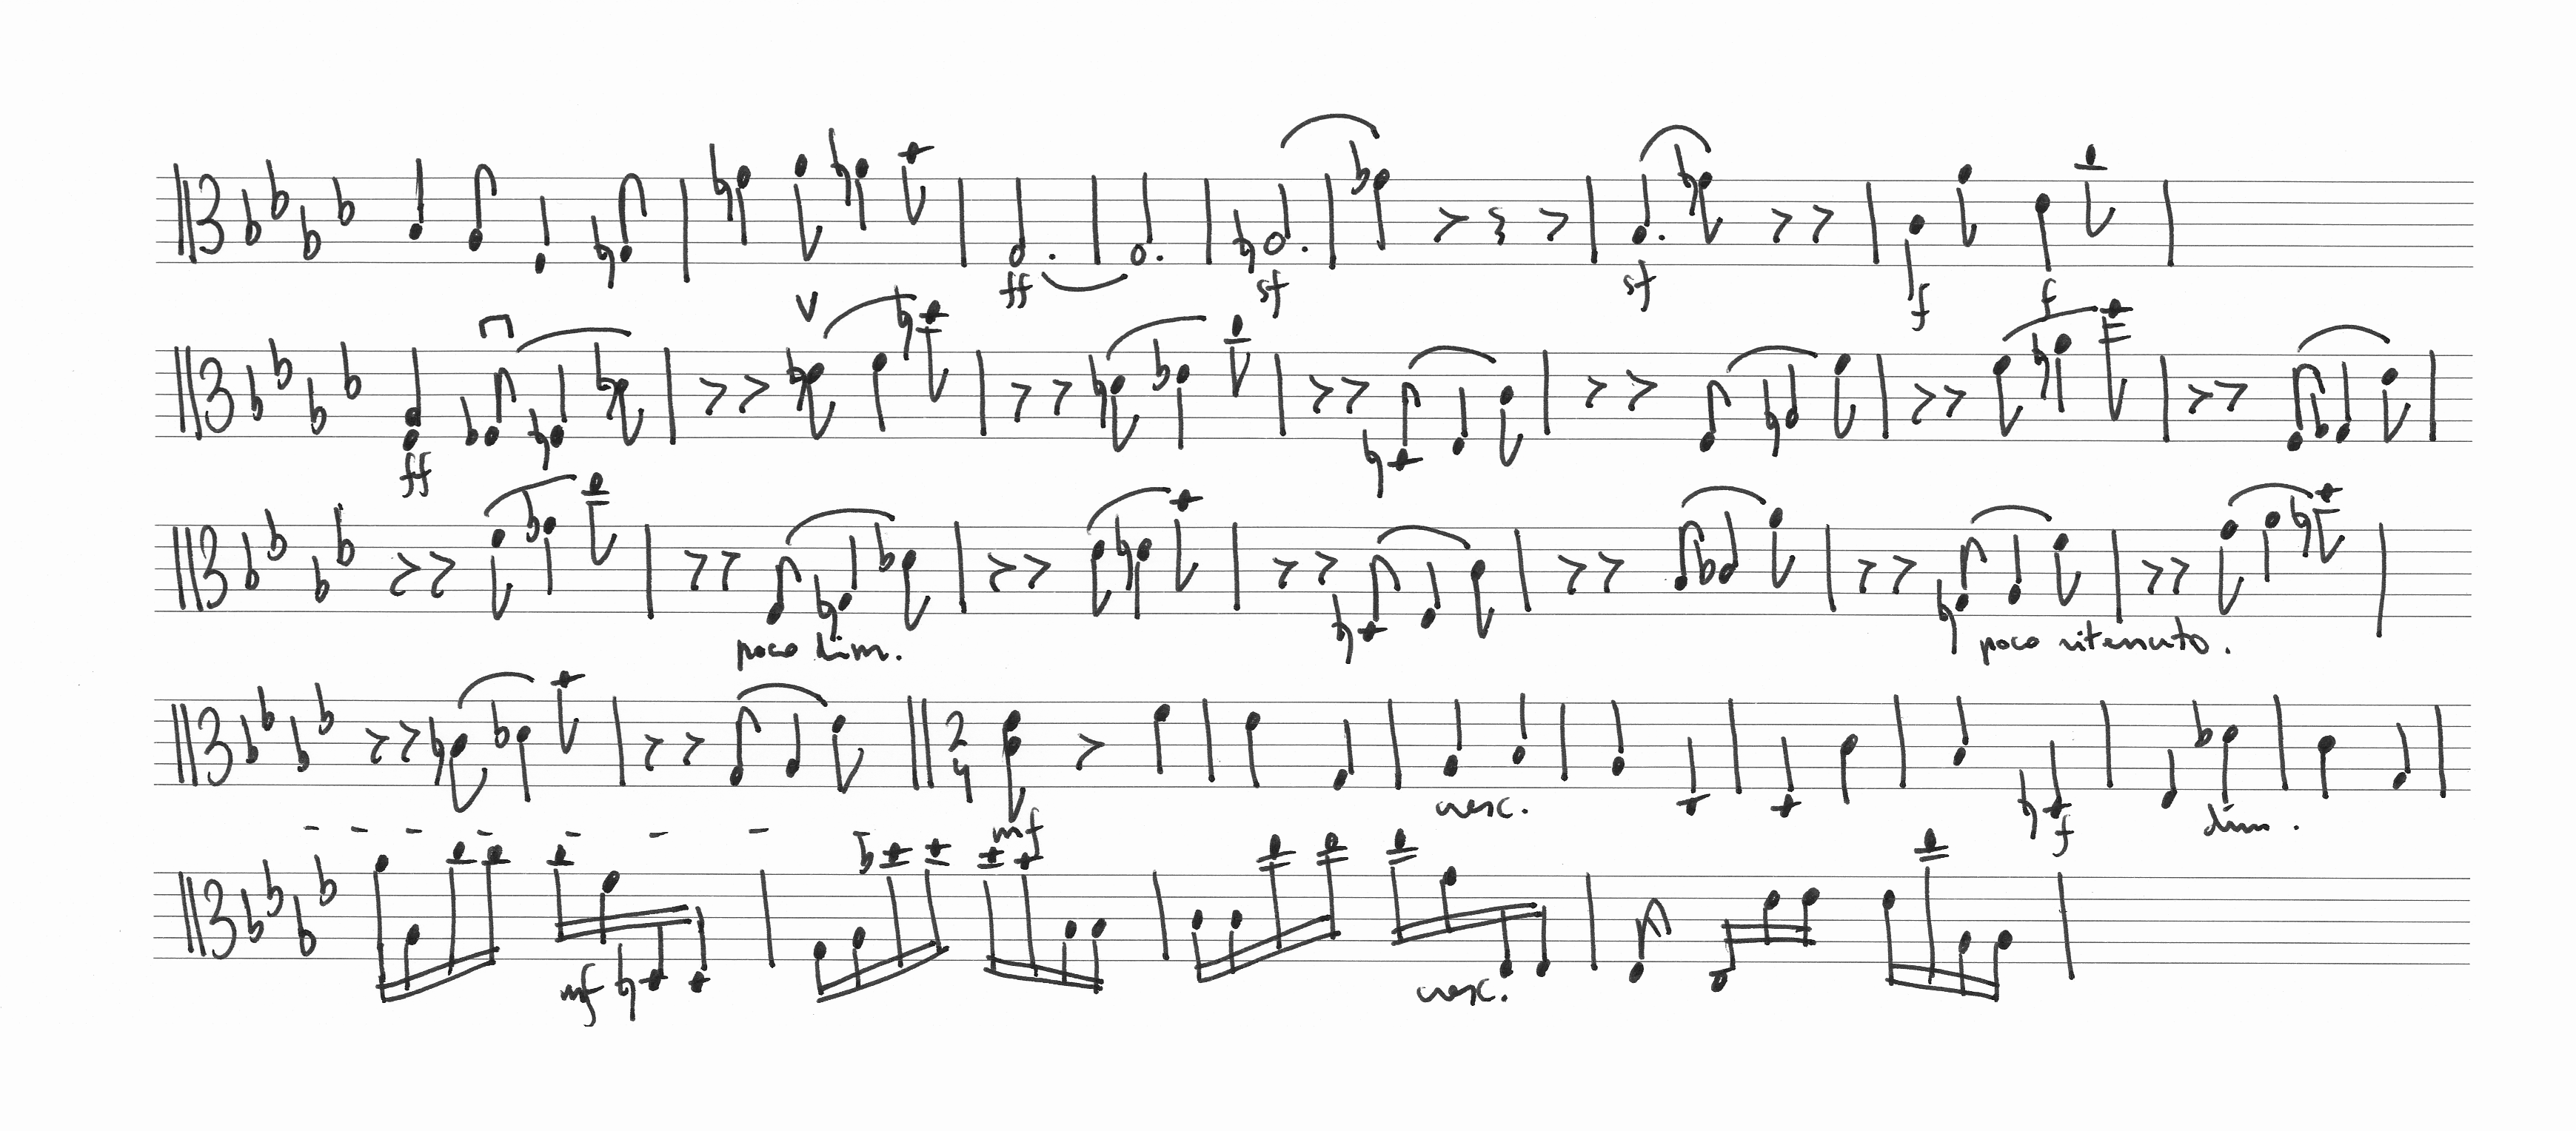 ff sf sf f f
ff
poco dim. poco ritenuto.
2
4
mf cresc. f dim.
mf cresc.